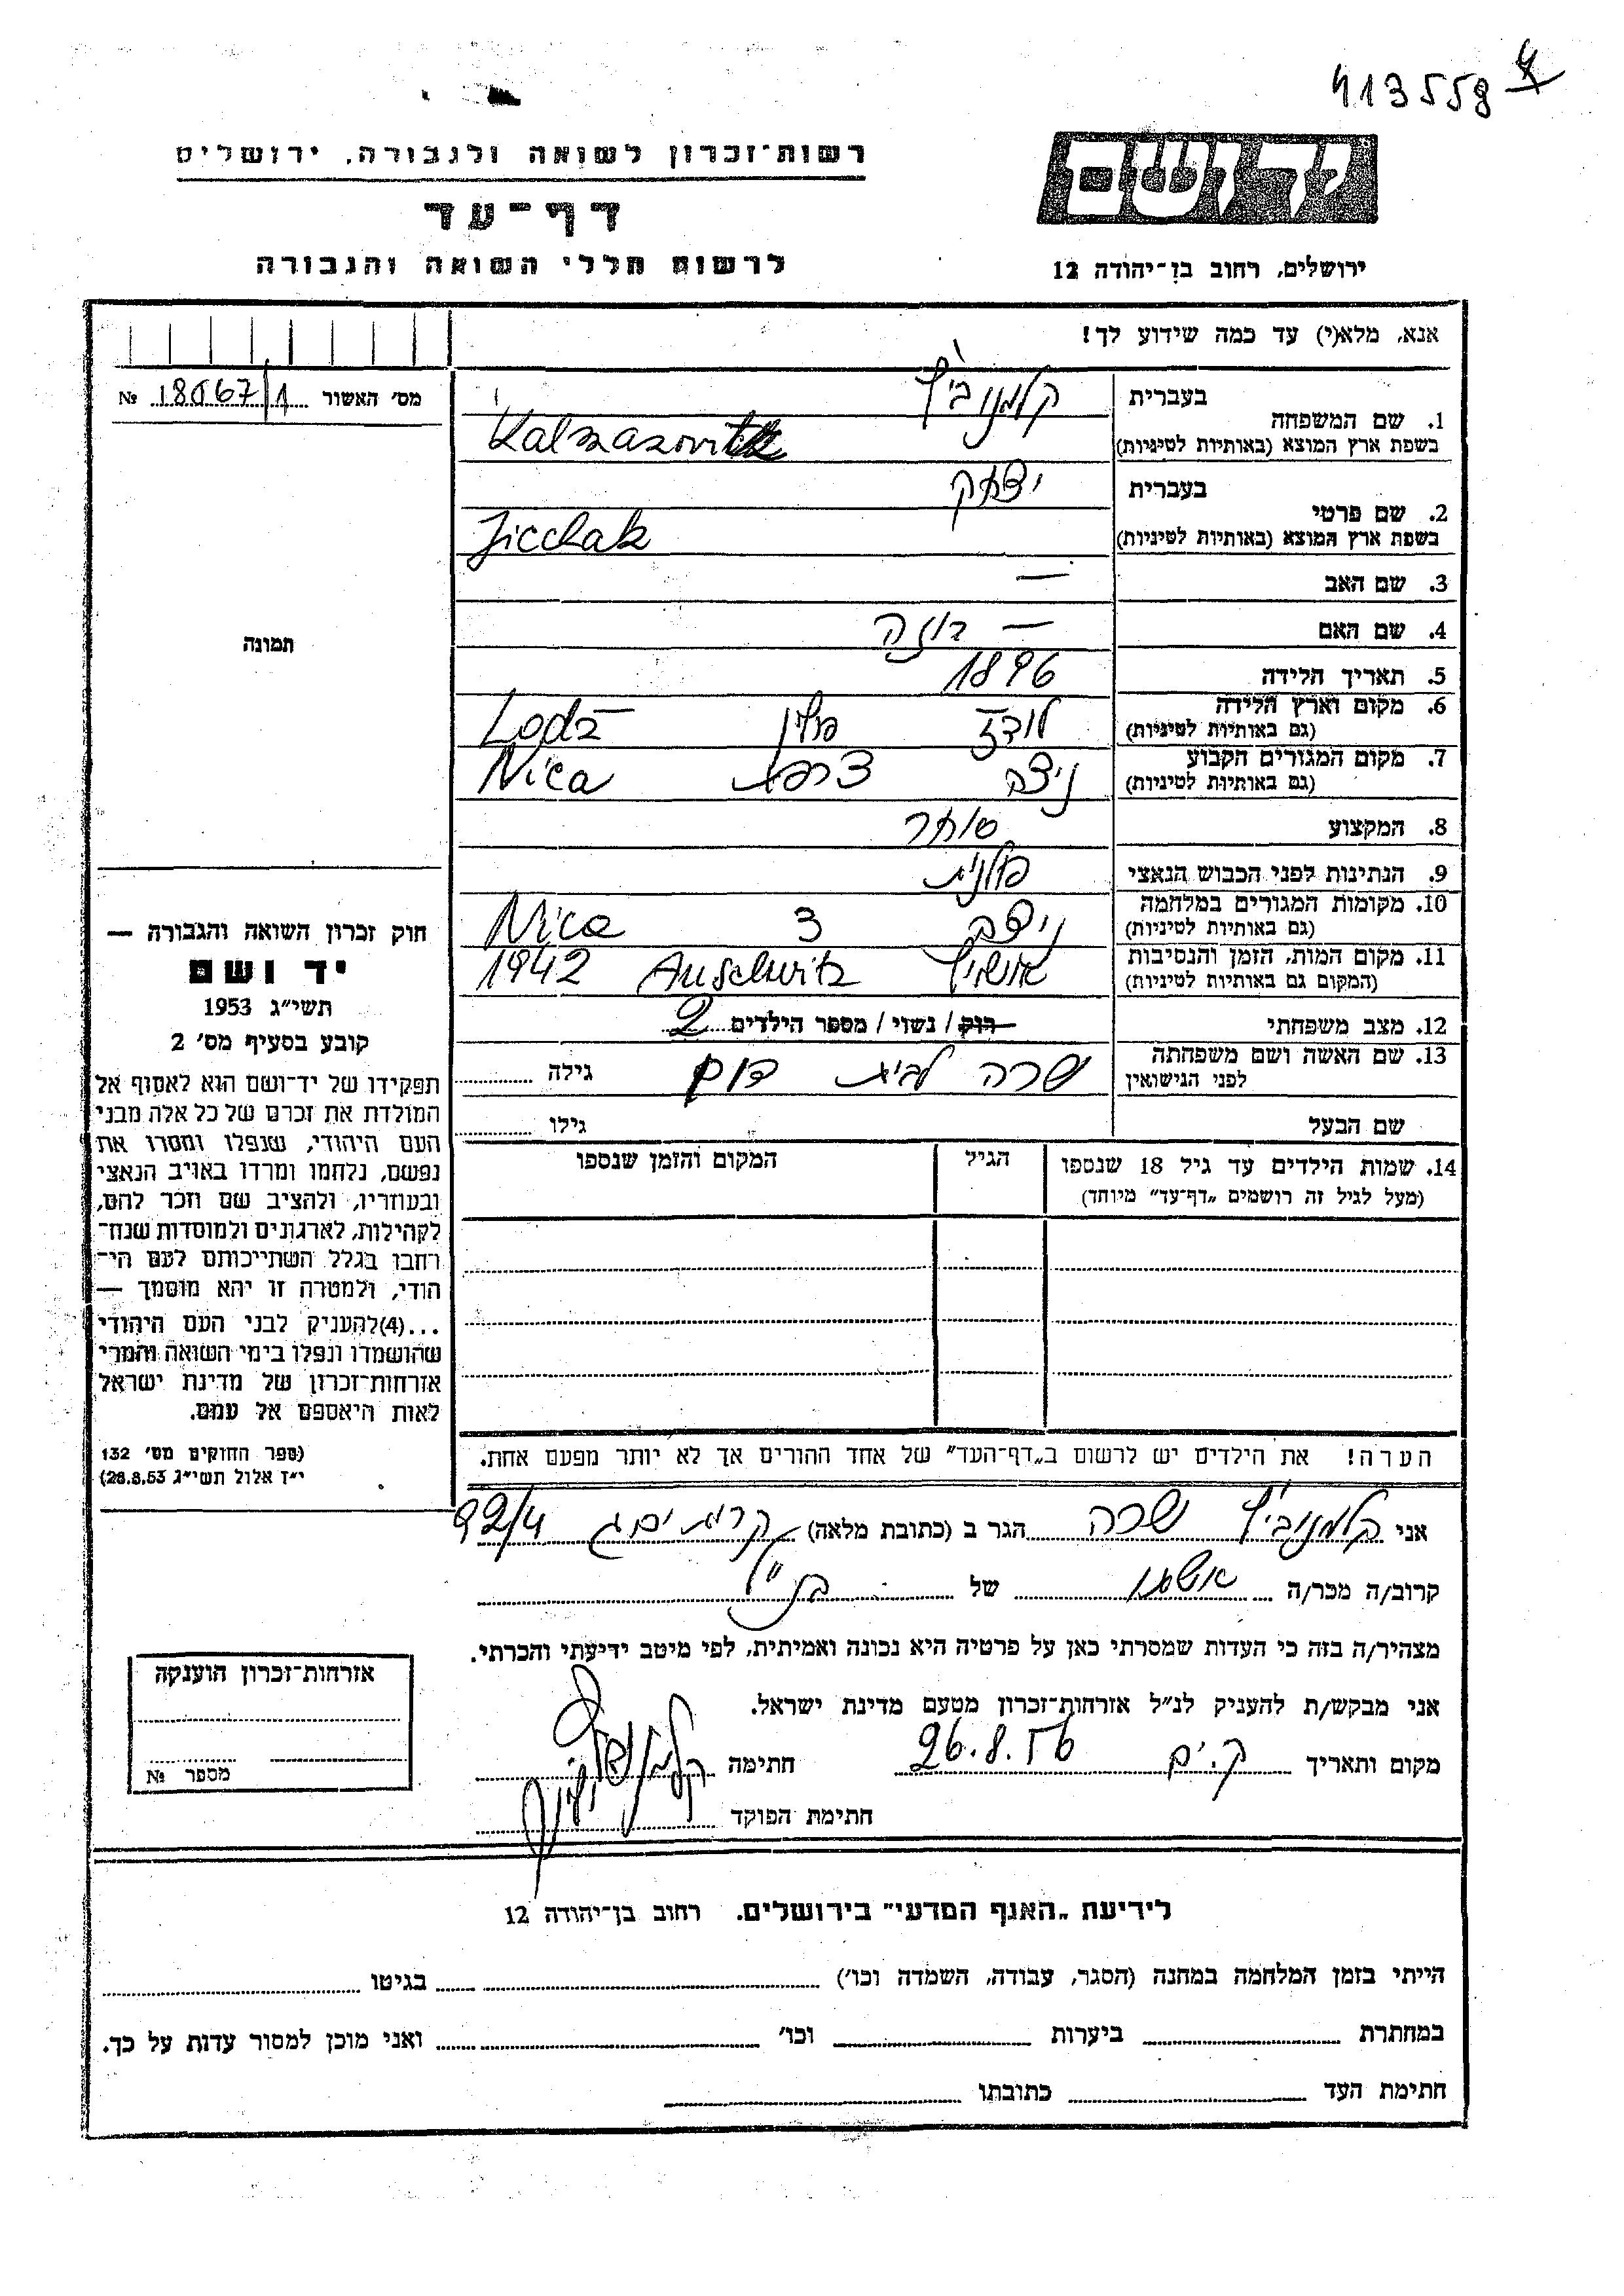 413558 4
יד ושם
ירושלים, רחוב בן־יהודה 12
רשות־זכרון לשואה ולגבורה, ירושלים
דף־עד
לרשום חללי השואה והגבורה
אנא, מלא(י) עד כמה שידוע לך!
מס' האשור № 180667/1
1. שם המשפחה בעברית קלמנוביץ
בשפת ארץ המוצא (באותיות לטיניות)
2. שם פרטי בעברית יצחק
בשפת ארץ המוצא (באותיות לטיניות) Jicchak
3. שם האב —
4. שם האם — רוזה
5. תאריך הלידה 1896
6. מקום וארץ הלידה לודז פולין Lodz
(גם באותיות לטיניות)
7. מקום המגורים הקבוע ניצה צרפת Nica
(גם באותיות לטיניות)
8. המקצוע סוחר
9. הנתינות לפני הכבוש הנאצי פולנית
10. מקומות המגורים במלחמה ניצה Nica
(גם באותיות לטיניות)
11. מקום המות, הזמן והנסיבות אושויץ Auschwitz 1942
(המקום גם באותיות לטיניות)
12. מצב משפחתי רוק / נשוי / מספר הילדים 2
13. שם האשה ושם משפחתה שרה לבית גילה
לפני הנישואין
שם הבעל גילו
14. שמות הילדים עד גיל 18 שנספו הגיל המקום והזמן שנספו
(מעל לגיל זה רושמים „דף־עד" מיוחד)
הערה! את הילדים יש לרשום ב„דף־העד" של אחד ההורים אך לא יותר מפעם אחת.
תמונה
חוק זכרון השואה והגבורה —
יד ושם
תשי"ג 1953
קובע בסעיף מס' 2
תפקידו של יד־ושם הוא לאסוף אל
המולדת את זכרם של כל אלה מבני
העם היהודי, שנפלו ומסרו את
נפשם, נלחמו ומרדו באויב הנאצי
ובעוזריו, ולהציב שם וזכר להם,
לקהילות, לארגונים ולמוסדות שנח־
רבו בגלל השתייכותם לעם הי־
הודי, ולמטרה זו יהא מוסמך —
...(4)להעניק לבני העם היהודי
שהושמדו ונפלו בימי השואה והמרי
אזרחות־זכרון של מדינת ישראל
לאות היאספם אל עמם.
(ספר החוקים מס' 132
י"ז אלול תשי"ג 28.8.53)
אני קלמנוביץ שרה הגר ב (כתובת מלאה) קרית ים ג 92/4
קרוב/ה מכר/ה אשתו של הנ"ל
מצהיר/ה בזה כי העדות שמסרתי כאן על פרטיה היא נכונה ואמיתית, לפי מיטב ידיעתי והכרתי.
אני מבקש/ת להעניק לנ"ל אזרחות־זכרון מטעם מדינת ישראל.
מקום ותאריך ק.ים 26.8.56 חתימה קלמנוביץ
חתימת הפוקד
אזרחות־זכרון הוענקה
מספר №
לידיעת „האגף המדעי" בירושלים. רחוב בן־יהודה 12
הייתי בזמן המלחמה במחנה (הסגר, עבודה, השמדה וכו') בגיטו
במחתרת ביערות וכו' ואני מוכן למסור עדות על כך.
חתימת העד כתובתו